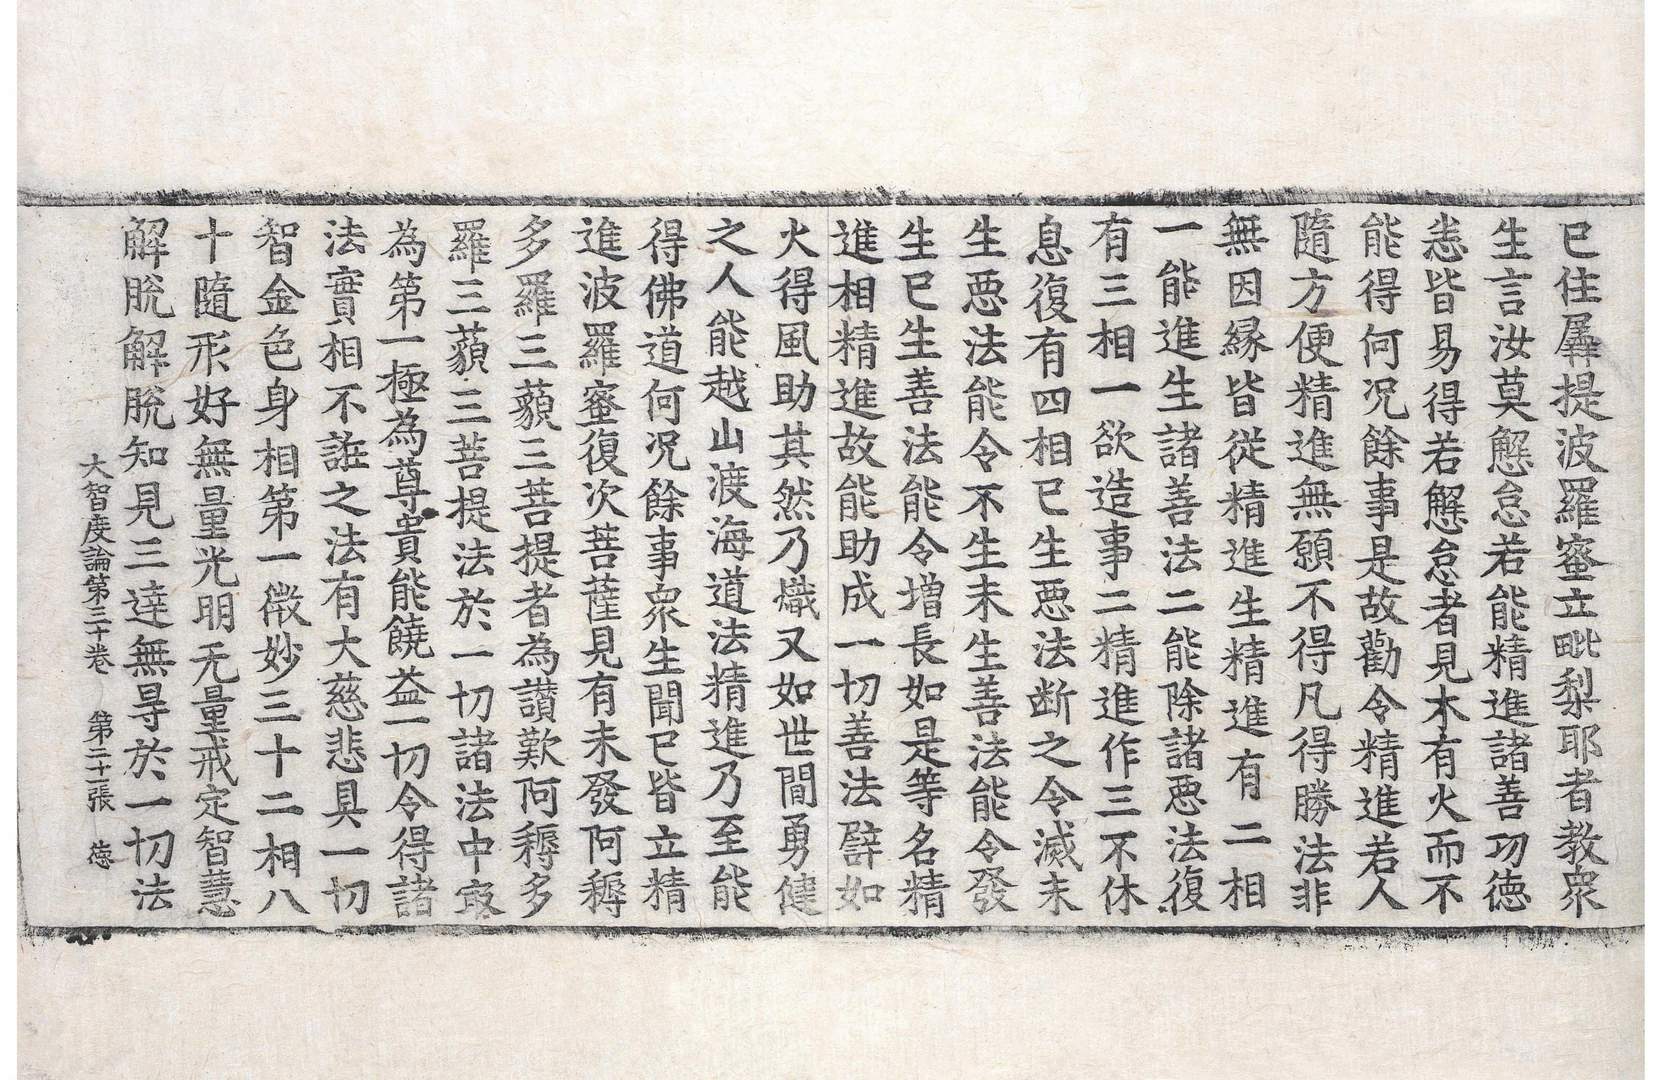 已住羼提波羅蜜立毗梨耶者教衆
生言汝莫懈怠若能精進諸善功德
悉皆易得若懈怠者見木有火而不
能得何况餘事是故勸令精進若人
隨方便精進無願不得凡得勝法非
無因緣皆從精進生精進有二相
一能進生諸善法二能除諸惡法復
有三相一欲造事二精進作三不休
息復有四相已生惡法断之令滅未
生惡法能令不生未生善法能令發
生已生善法能令增長如是等名精
進相精進故能助成一切善法譬如
火得風助其然乃熾又如世間勇健
之人能越山渡海道法精進乃至能
得佛道何况餘事衆生聞已皆立精
進波羅蜜復次菩薩見有未發阿耨
多羅三藐三菩提者為讃歎阿耨多
羅三藐三菩提法於一切諸法中冣
為第一極為尊貴能饒益一切令得諸
法實相不誑之法有大慈悲具一切
智金色身相第一微妙三十二相八
十隨形好無量光明无量戒定智慧
解脫解脫知見三達無㝵於一切法
大智度論第三十卷　第二十二張　德